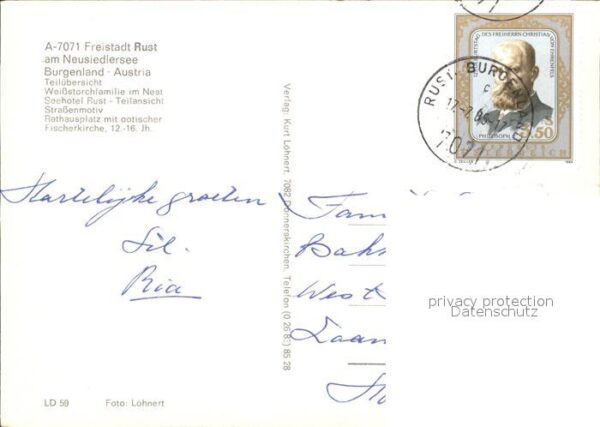 A-7071 Freistadt Rust
am Neusiedlersee
Burgenland - Austria
Teilübersicht
Weißstorchfamilie im Nest
Seehotel Rust - Teilansicht
Straßenmotiv
Rathausplatz mit gotischer
Fischerkirche, 12.-16. Jh.
Hartelijke groeten
Sil.
Ria
LD 59 Foto: Löhnert
Verlag: Kurt Löhnert, 7082 Donnerskirchen, Telefon (0 26 83) 85 28
DES FREIHERRN CHRISTIAN
VON EHRENFELS
PHILOSOPH
S 3.50
RUST, BURGENLAND
7071
Fam
West
privacy protection
Datenschutz